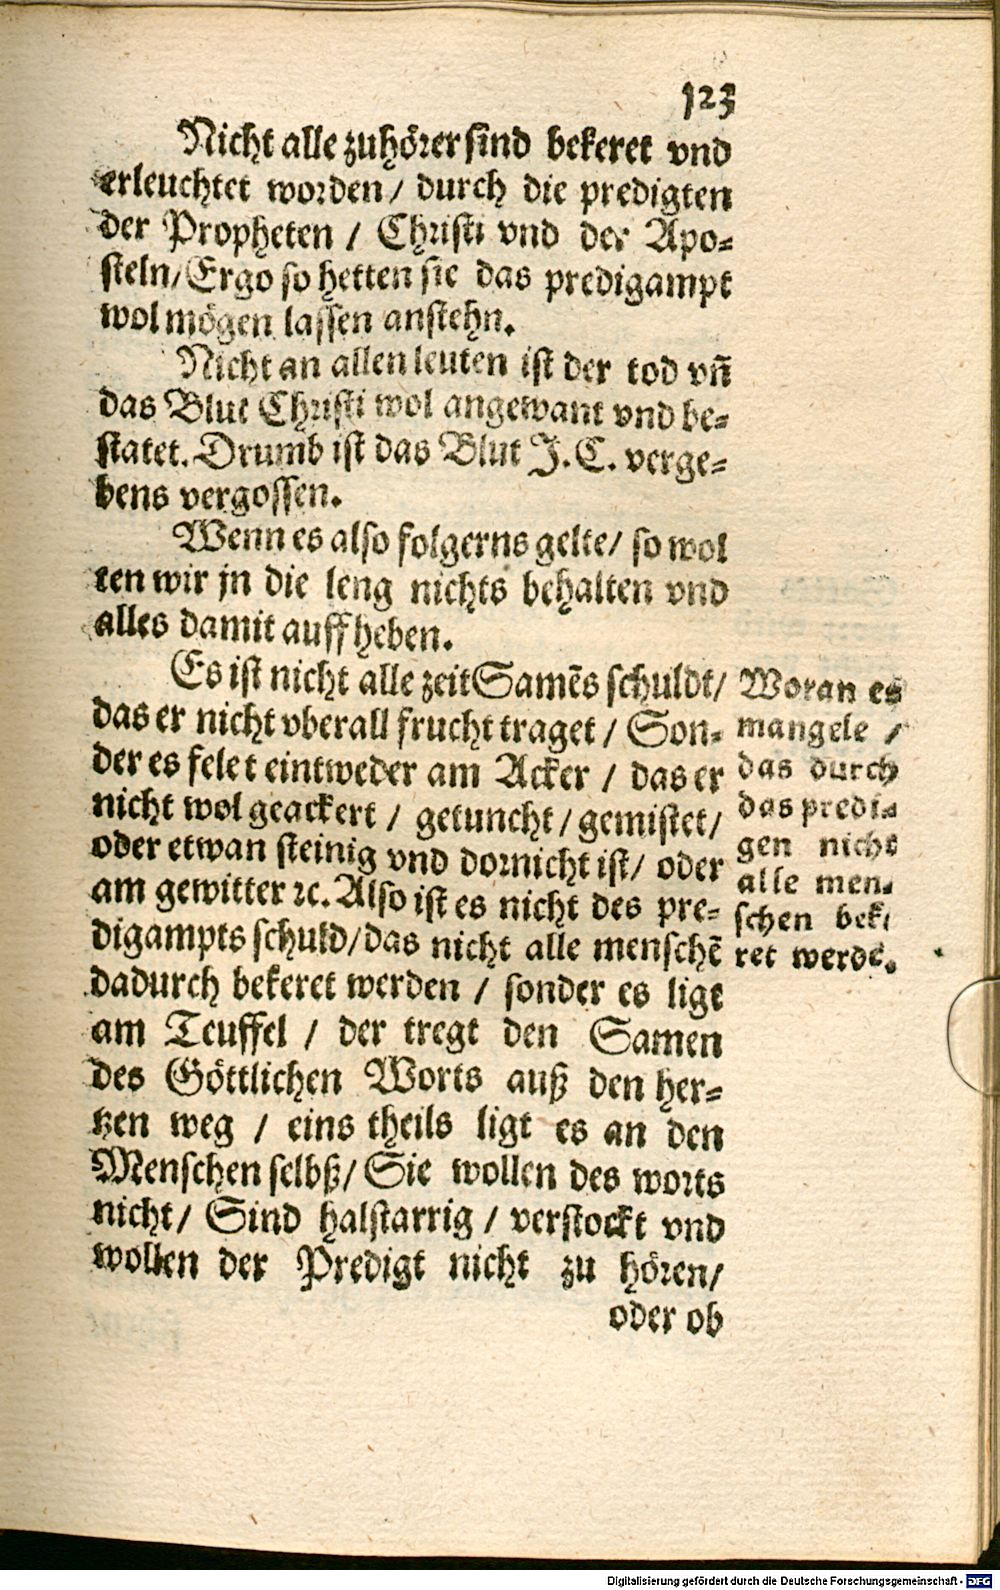 123
Nicht alle zuhörer sind bekeret vnd
erleuchtet worden / durch die predigten
der Propheten / Christi vnd der Apo-
steln / Ergo so hetten sie das predigampt
wol mögen lassen anstehn.
Nicht an allen leuten ist der tod vn̄
das Blut Christi wol angewant vnd be-
statet. Drumb ist das Blut J. C. verge-
bens vergossen.
Wenn es also folgerns gelte / so wol
ten wir jn die leng nichts behalten vnd
alles damit auff heben.
Es ist nicht alle zeit Samēs schuldt /
das er nicht vberall frucht traget / Son-
der es felet eintweder am Acker / das er
nicht wol geackert / getuncht / gemistet /
oder etwan steinig vnd dornicht ist / oder
am gewitter ꝛc. Also ist es nicht des pre-
digampts schuld / das nicht alle menschē
dadurch bekeret werden / sonder es ligt
am Teuffel / der tregt den Samen
des Göttlichen Worts auß den her-
tzen weg / eins theils ligt es an den
Menschen selbß / Sie wollen des worts
nicht / Sind halstarrig / verstockt vnd
wollen der Predigt nicht zu hören /
oder ob
Woran es
mangele /
das durch
das predi-
gen nicht
alle men-
schen beke
ret werdē.
Digitalisierung gefördert durch die Deutsche Forschungsgemeinschaft - DFG